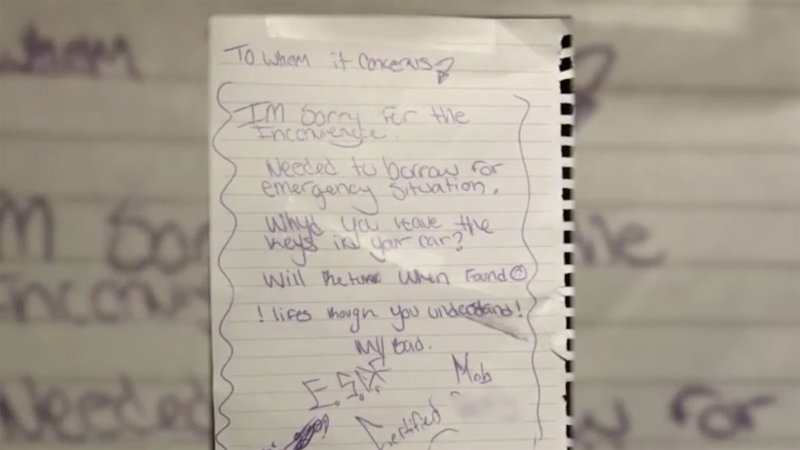 To whom it concerns
I'M Sorry For the
Inconvience.
Needed to borrow for
emergency situation,
Why'd you leave the
keys in your car?
Will Return When Found
! lifes though you understand!
My bad.
Mob
Certified